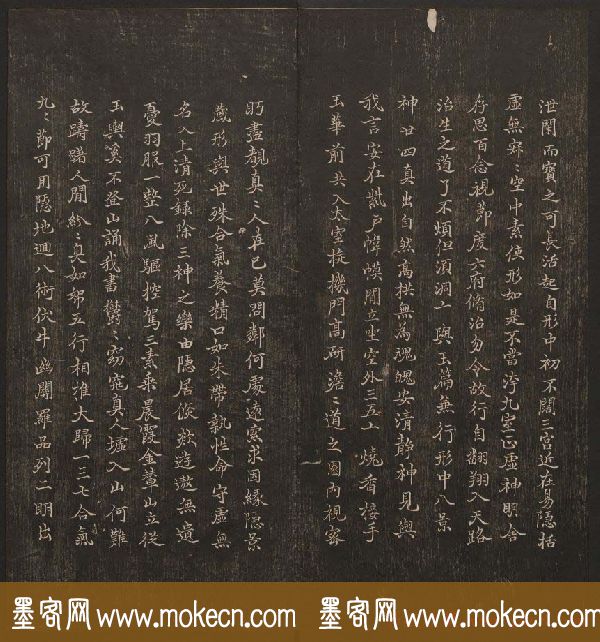 泄闭而宝之可长活起自形中初不阔三宫近在易隐括
虚無寂空中素使形如是不當汙九室正虚神明舍
存思百念視節度六府脩治勿令故行自翱翔入天路
治生之道了不煩但洞玉與玉篇無行形中八景
神廿四真出自然高拱無為魂魄安清静神見與
我言安在紫戶幃幙閒立坐室外三五上燒香接手
玉華前共入太室璇機門高研澹之道之園内視密
眄盡覩真人在己莫問鄰何處遠索求因緣隱景
藏形與世殊含氣養精口如朱帶執性命守虚無
名入上清死録除三神之樂由隱居倏歘遊遨無遺
憂羽服一整八風驅控駕三素乘晨霞金輦正立從
玉輿奚不登山誦我書鬱窈窕真人墟入山何難
故躊躇人間紛臭如帤五行相推大歸一三七合氣
九節可用隱地迴八術伏牛幽闕羅品列二明出
墨客网 www.mokecn.com
墨客网 www.mokecn.com